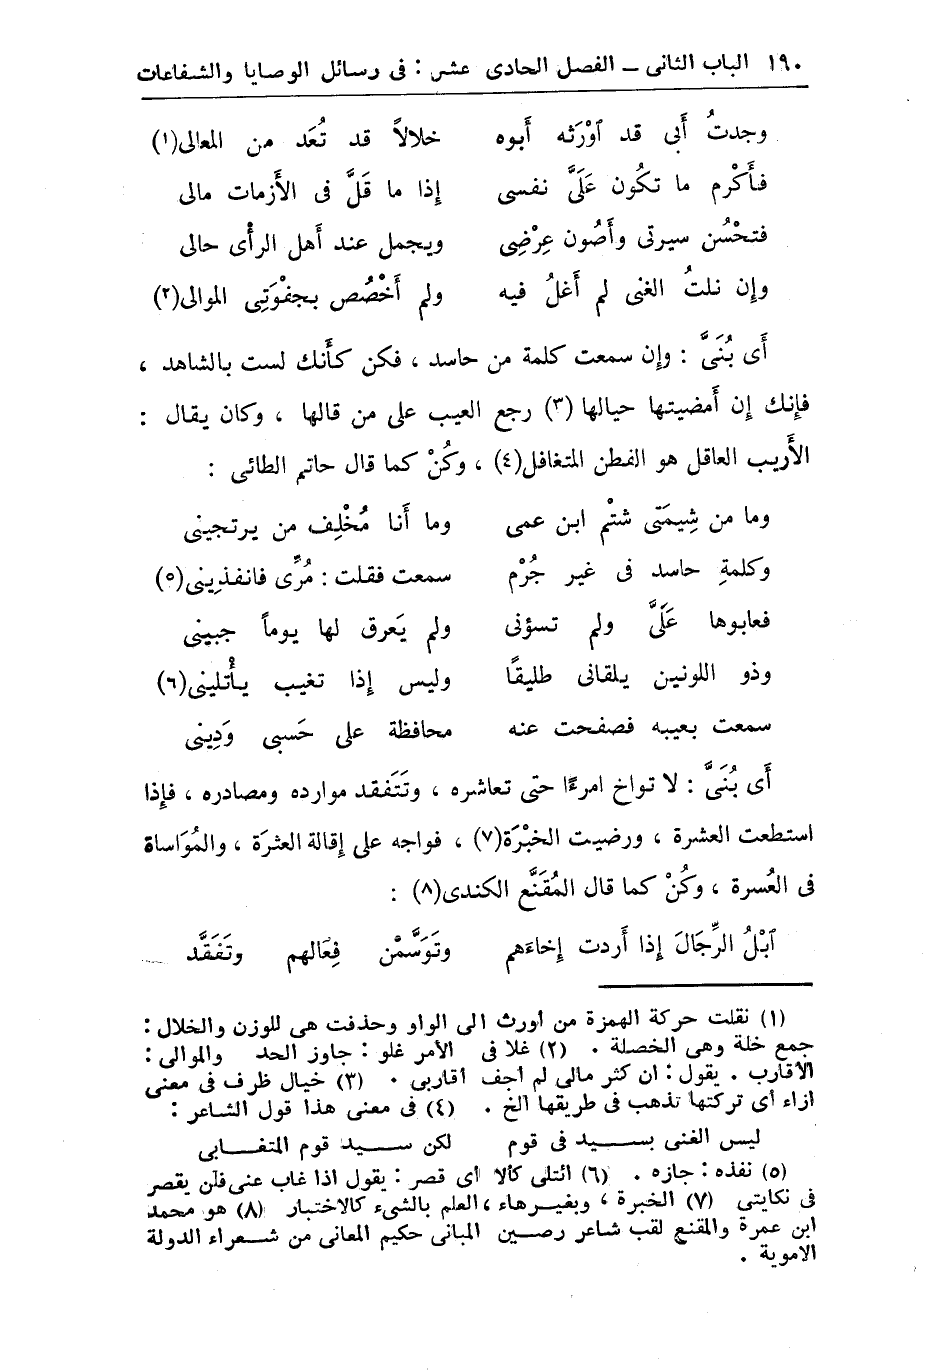 ١٩٠ الباب الثانى ــ الفصل الحادى عشر : فى رسائل الوصايا والشفاعات
وجدتُ أَبى قد ٱوْرَثه أَبوه خلالاً قد تُعَد من المعالى(١)
فأَكْرم ما تكُون عَلَىَّ نفسى إذا ما قَلَّ فى الأَزمات مالى
فتحْسُن سيرتى وأَصُون عِرْضِى ويجمل عند أَهل الرأْى حالى
وإن نلتُ الغنى لم أَغلُ فيه ولم أَخْصُص بجفْوَتِى الموالى(٢)
أَى بُنَىَّ : وإن سمعت كلمة من حاسد ، فكن كأَنك لست بالشاهد ،
فإنك إن أَمضيتها حيالها (٣) رجع العيب على من قالها ، وكان يقال :
الأَريب العاقل هو الفطن المتغافل(٤) ، وكُنْ كما قال حاتم الطائى :
وما من شِيمَتى شتْم ابن عمى وما أَنا مُخْلِف من يرتجينى
وكلمةِ حاسد فى غير جُرْم سمعت فقلت : مُرِّى فانفذِينى(٥)
فعابوها عَلَىَّ ولم تسؤنى ولم يَعرق لها يوماً جبينى
وذو اللونين يلقانى طليقًا وليس إذا تغيب يأْتلينى(٦)
سمعت بعيبه فصفحت عنه محافظة على حَسَبى وَدِينى
أَى بُنَىَّ : لا تواخ امرءًا حتى تعاشره ، وتَتَفقد موارده ومصادره ، فإذا
استطعت العشرة ، ورضيت الخبْرَة(٧) ، فواجه على إقالة العثرَة ، والمُوَاساة
فى العُسرة ، وكُنْ كما قال المُقَنَّع الكندى(٨) :
ٱبْلُ الرِّجَالَ إذا أَردت إخاءَهم وتَوَسَّمْن فِعَالهم وتَفَقَّد
(١) نقلت حركة الهمزة من أورث الى الواو وحذفت هى للوزن والخلال :
جمع خلة وهى الخصلة . (٢) غلا فى الأمر غلو : جاوز الحد والموالى :
الأقارب . يقول : ان كثر مالى لم أجف أقاربى . (٣) خيال ظرف فى معنى
ازاء أى تركتها تذهب فى طريقها الخ . (٤) فى معنى هذا قول الشاعر :
ليس الغنى بسـيد فى قوم لكن سـيد قوم المتغـابى
(٥) نفذه : جازه . (٦) ائتلى كألا أى قصر : يقول اذا غاب عنى فلن يقصر
فى نكايتى (٧) الخبرة ، وبغيـر هاء ، العلم بالشىء كالاختبار (٨) هو محمد
ابن عمرة والمقنع لقب شاعر رصـين المبانى حكيم المعانى من شـعراء الدولة
الأموية .